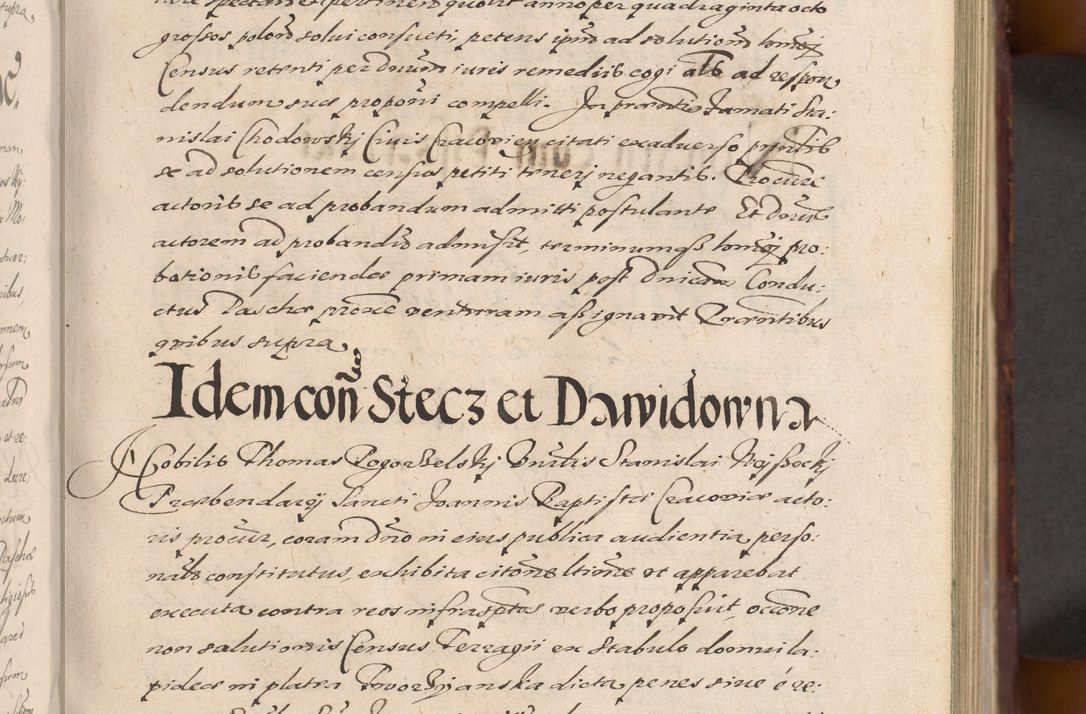 grossos polon solui consueti, petens ipm ad solutionem hmoi
Census retenti per Dnum iuris remediis cogi als ad respon
dendum suis proponi compelli. In prsentia Famati Sta:
nislai Chodowskj Ciuis Cracovien citati ex aduerso prntib
se ad solutionem census petiti teneri negantib. Procure
actoris se ad probandum admitti postulante Et Dnus
actorem ad probandu admisit, terminumqz hmoi pro:
bationis faciendae primam iuris post Dnicam Condu:
ctus Paschae proxe venturam assignavit Prsentibus
quibus supra
Idem con Stecz et Dawidowna
Nobilis Thomas Rogozielskj Vnblis Stanislai Weissockj
Praebendarij Sancti Joannis Baptistae Cracoviae acto:
ris procur, coram Dno in eius publica audientia perso:
nalr constitutus, exhibita citone ltima vt apparebat
executa contra reos infrasptos verbo proposuit, occone
non solutionis Census Terragii ex stabulo domui la:
pideae in platea dicta penes siue e re: